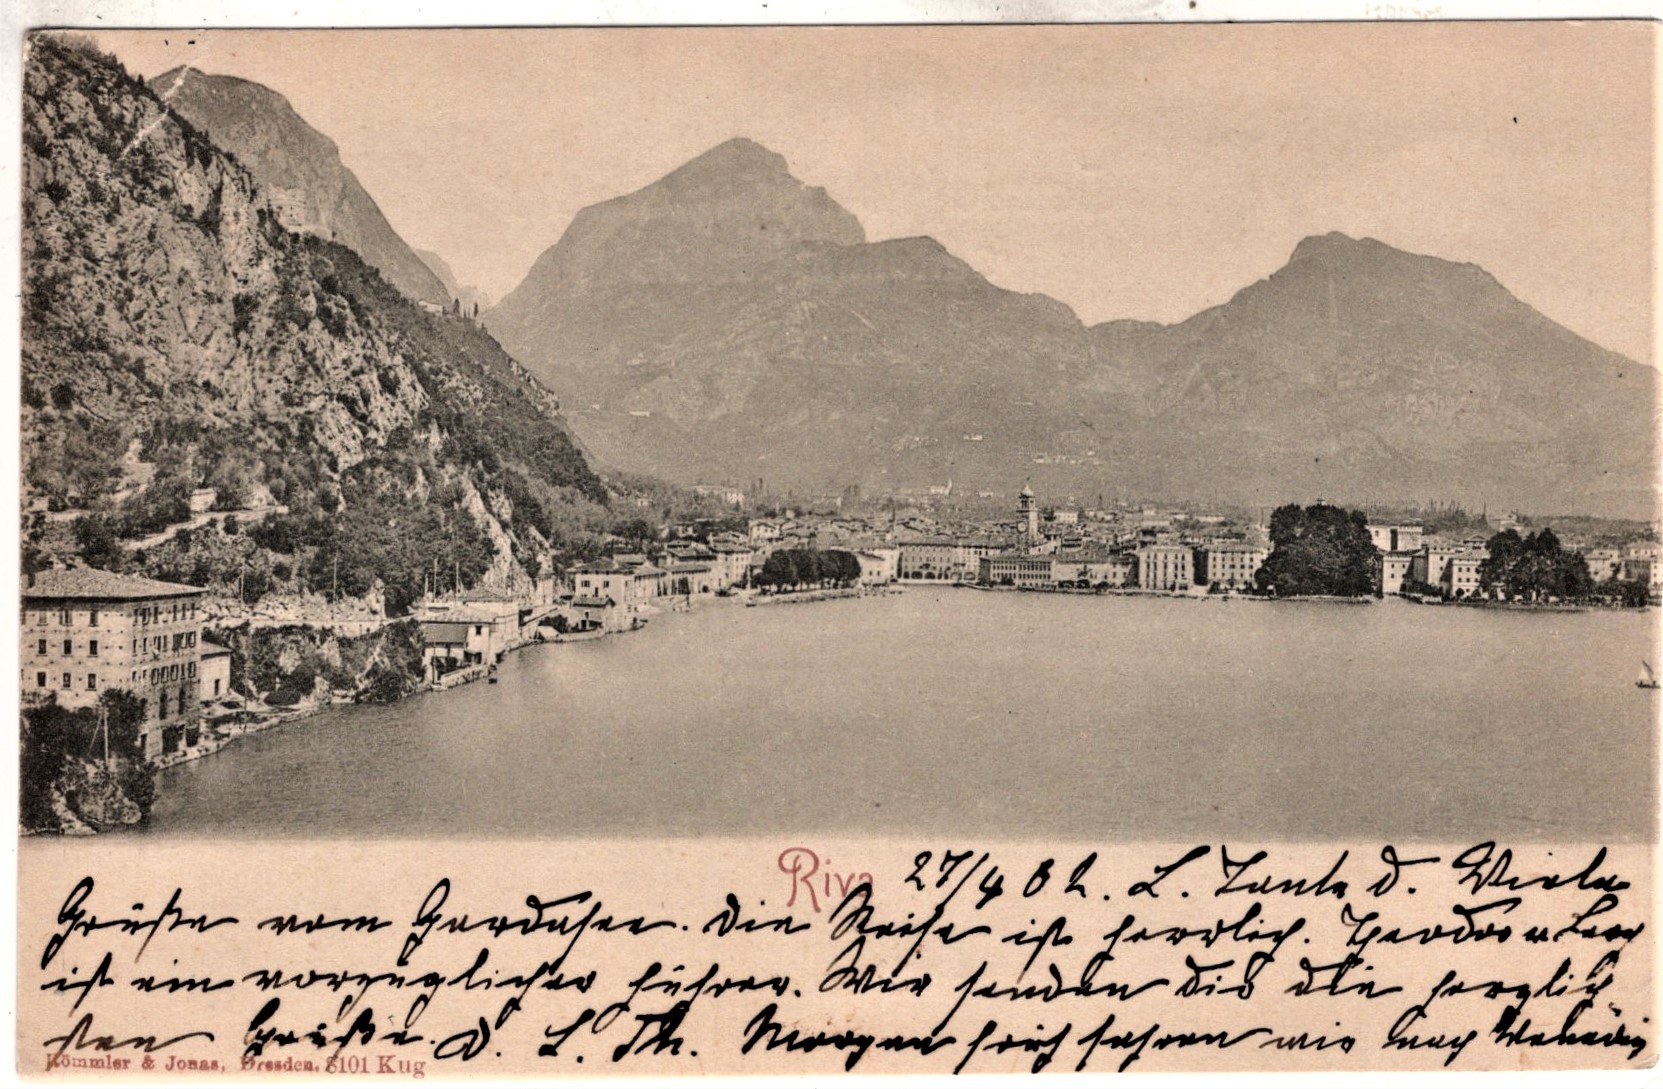 Riva
27/4 02. L. Tante d. Viele
Grüße vom Gardasee. Die Reise ist herrlich. Theodor u
ist ein vorzüglicher Führer. Wir senden dir die herzlich
sten Grüße. D. L. Th. Morgen früh fahren wir nach Venedig
Römmler & Jonas, Dresden. 8101 Kug